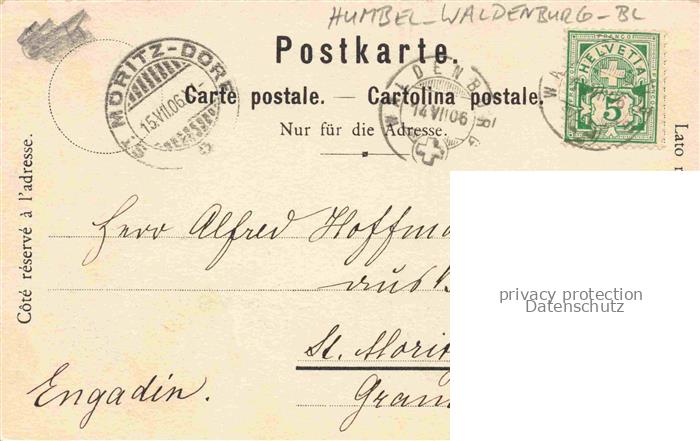 HUMBEL_WALDENBURG-BL
Postkarte.
Carte postale. — Cartolina postale.
Nur für die Adresse.
Côté réservé à l'adresse.
Lato
ST. MORITZ-DORF
15.VII.06
WALDENBURG
14.VII.06
FRANCO
HELVETIA
5
Herr Alfred Hoffm
St. Morit
Engadin.
privacy protection
Datenschutz